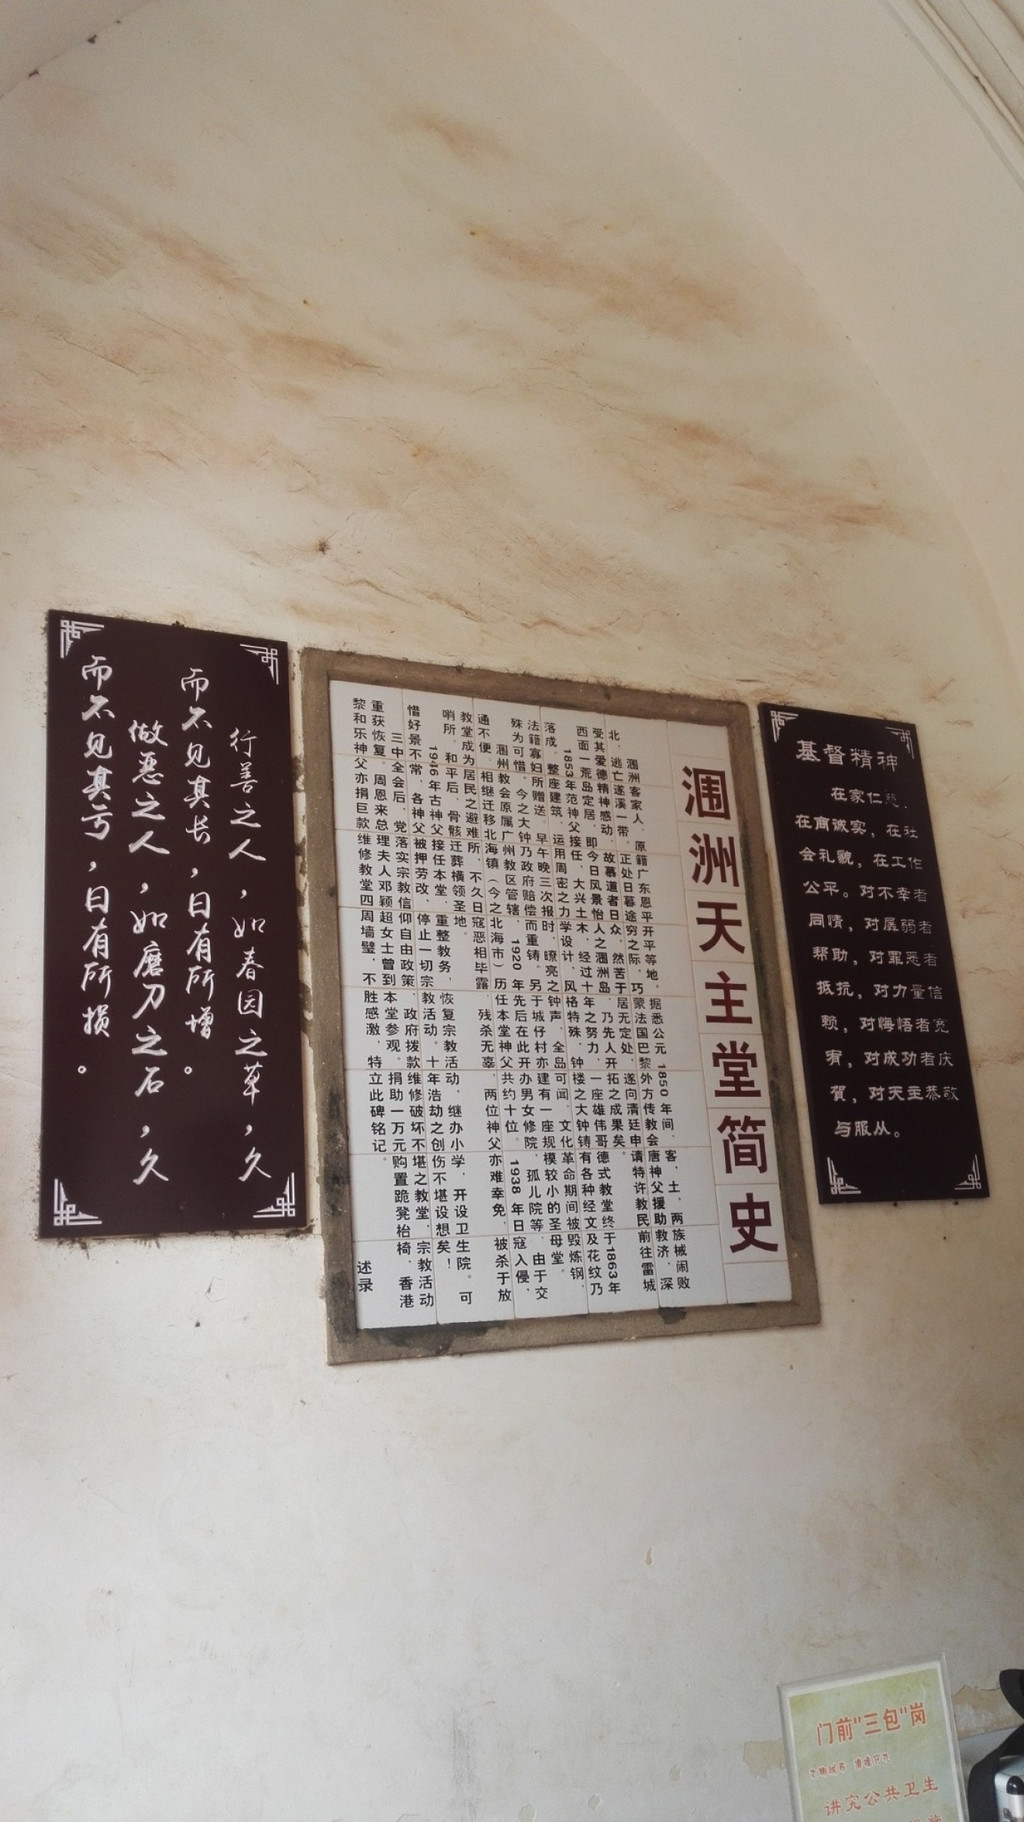 基督精神
在家仁慈，
在商诚实，在社
会礼貌，在工作
公平。对不幸者
同情，对孱弱者
帮助，对罪恶者
抵抗，对力量信
赖，对悔悟者宽
宥，对成功者庆
賀，对天主恭敬
与服从。
涠洲天主堂简史
涠洲客家人，原籍广东恩平开平等地，据悉公元1850年间，客，土，两族械闹败
北，逃亡遂溪一带，正处日暮途穷之际，巧蒙法国巴黎外方传教会唐神父援助救济，深
受其爱德精神感动，故慕道者日众，然苦于居无定处，遂向清廷申请特许教民前往雷城
西面一荒岛定居，即今日风景怡人之涠洲岛，乃先人开拓之成果矣。
1853年范神父接任，大兴土木，经过十年之努力，一座雄伟哥德式教堂终于1863年
落成，整座建筑，运用周密之力学设计，风格特殊，钟楼之大钟铸有各种经文及花纹乃
法籍寡妇所赠送，早午晚三次报时，嘹亮之钟声，全岛可闻。文化革命期间被毁炼钢，
殊为可惜，今之大钟乃政府赔偿而重铸。另于城仔村亦建有一座规模较小的圣母堂。
涠州教会原属广州教区管辖，1920年先后在此开办男女修院，孤儿院等，由于交
通不便，相继迁移北海镇（今之北海市）历任本堂神父共约十位。1938年日寇入侵，
教堂成为居民之避难所，不久日寇恶相毕露，残杀无辜，两位神父亦难幸免，被杀于放
哨所，和平后，骨骸迁葬横领圣地。
1946年古神父接任本堂，重整教务，恢复宗教活动，继办小学，开设卫生院。可
惜好景不常，各神父被押劳改，停止一切宗教活动。十年浩劫之创伤不堪设想矣！
三中全会后，党落实宗教信仰自由政策，政府拨款维修破坏不堪之教堂，宗教活动
重获恢复。周恩来总理夫人邓颖超女士曾到本堂参观，捐助一万元购置跪凳枱椅，香港
黎和乐神父亦捐巨款维修教堂四周墙壁，不胜感激，特立此碑铭记。 述录
行善之人，如春园之草，久
而不见其长，日有所增。
做恶之人，如磨刀之石，久
而不见其亏，日有所损。
门前"三包"岗
讲究公共卫生